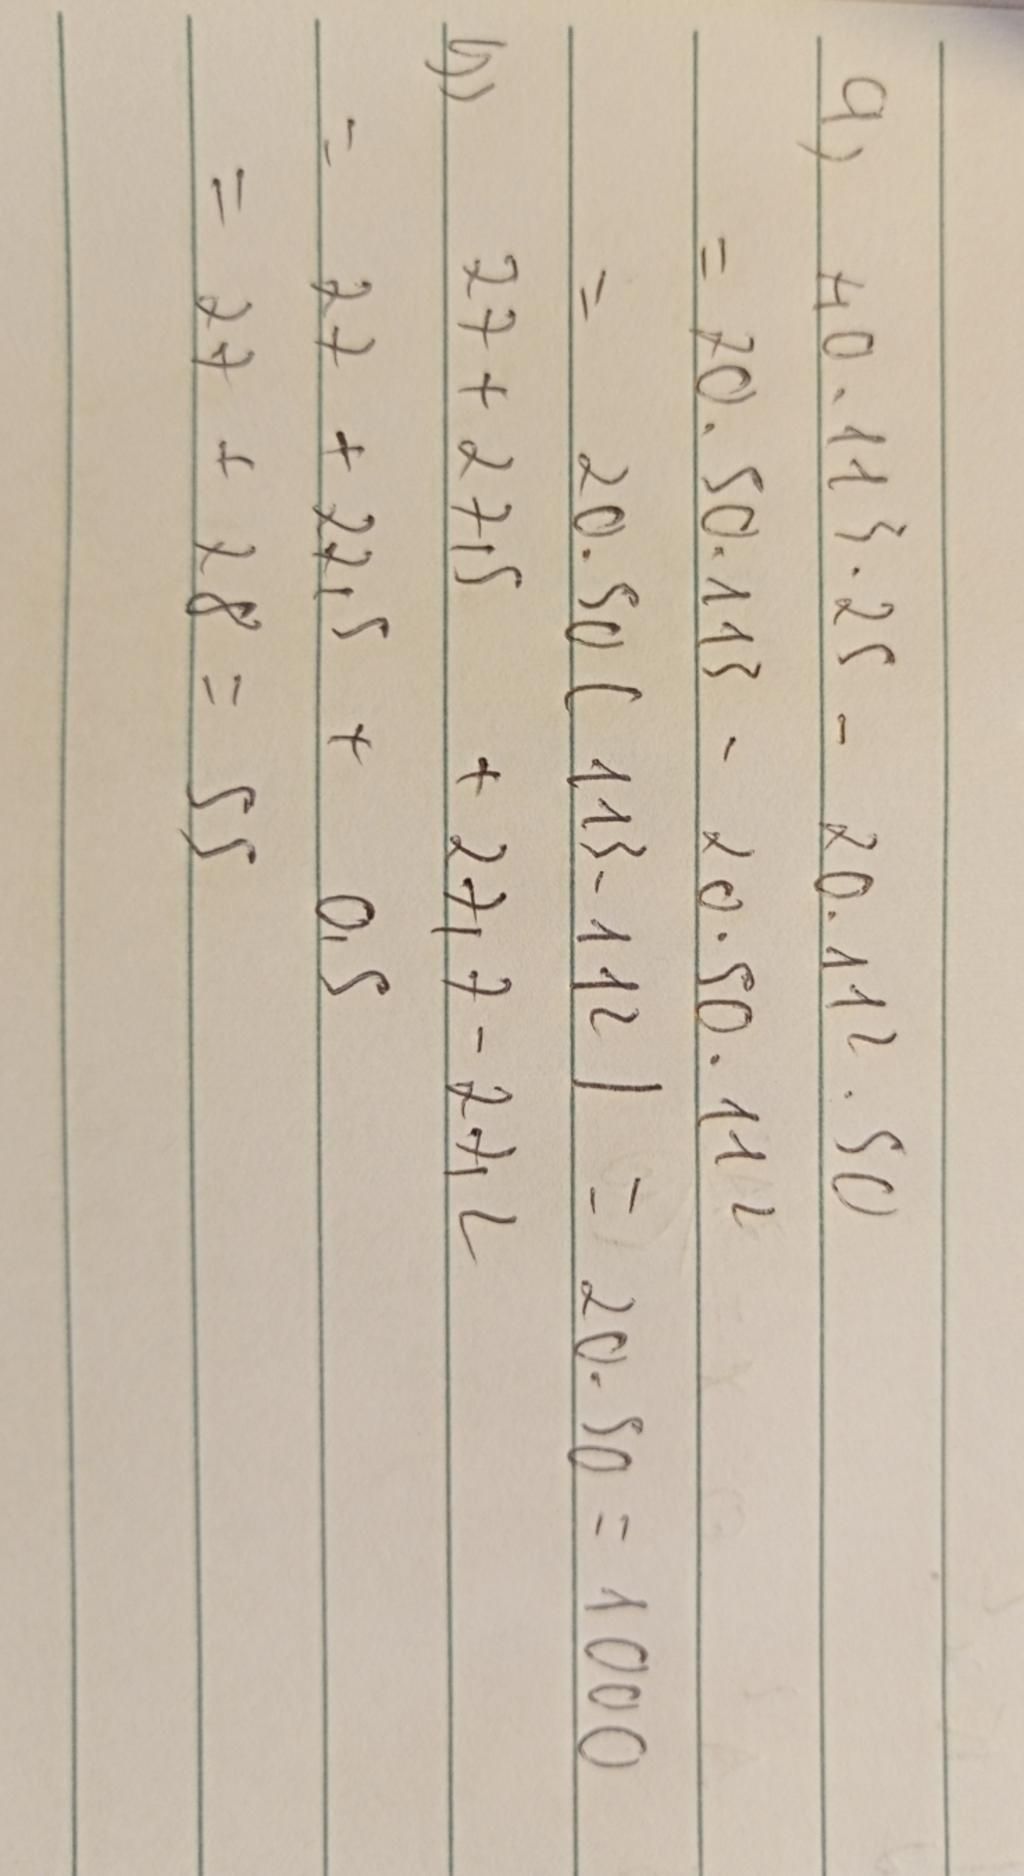 a) 40.113.25 - 20.112.50
= 20.50.113 - 20.50.112
= 20.50(113-112) = 20.50 = 1000
b) 27 + 27,5 + 27,7 - 27,2
= 27 + 27,5 + 0,5
= 27 + 28 = 55